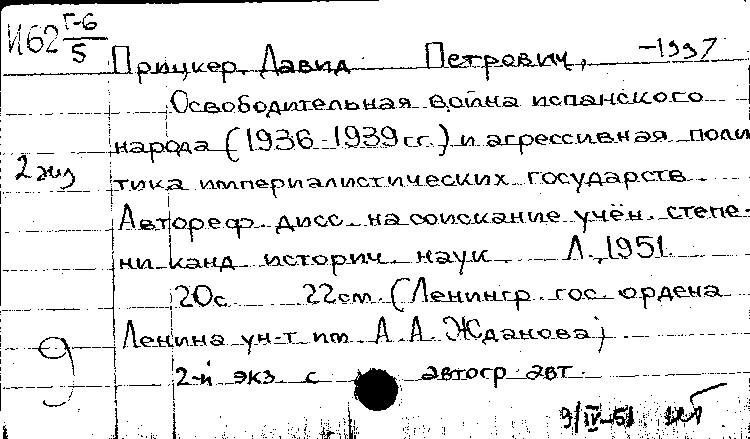 И62 Г-6/5
Прицкер, Давид Петрович, -1997
Освободительная война испанского
народа (1936-1939 гг.) и агрессивная поли
2 экз
тика империалистических государств.
Автореф. дисс. на соискание учён. степе-
ни канд историч. наук. Л., 1951.
20с. 22см. (Ленингр. гос. ордена
Ленина ун-т им. А. А. Жданова)
9
2-й экз. с автогр. авт.
9/IV-51